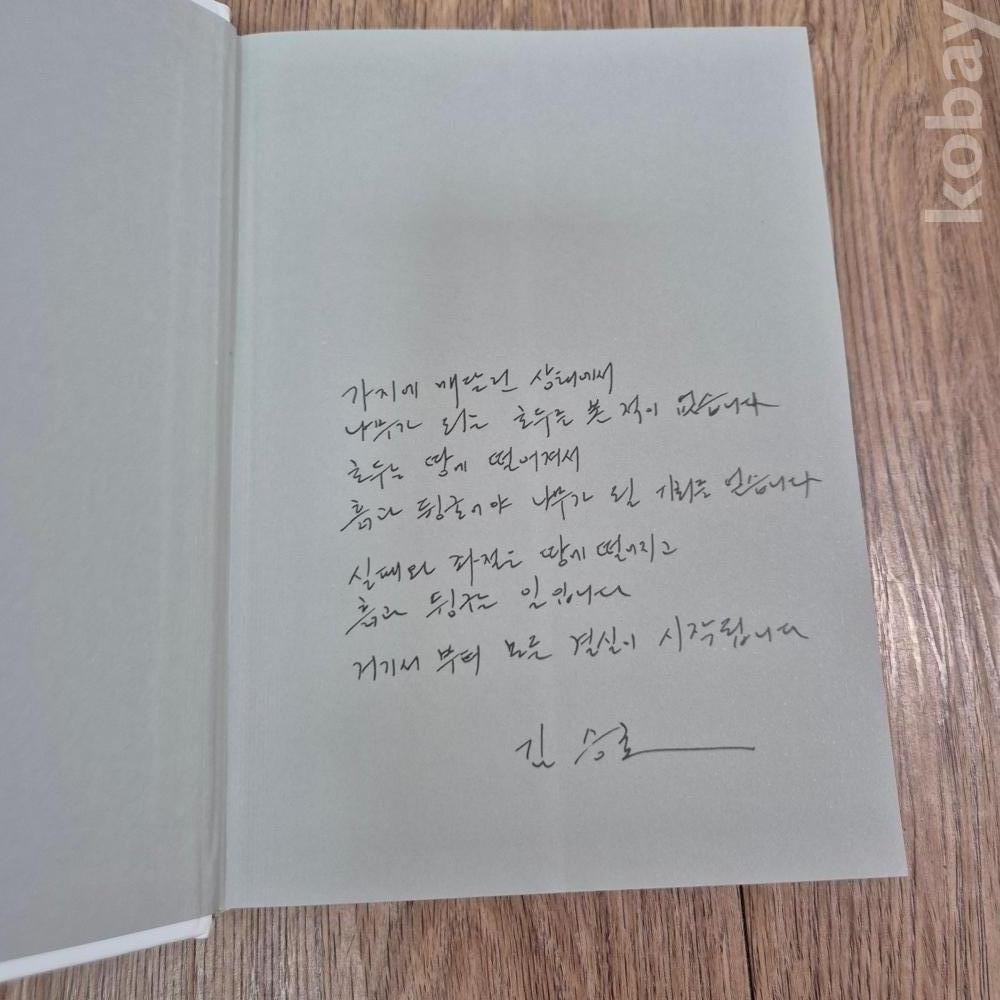 가지에 매달린 상태에서
나무가 되는 호두를 본 적이 없습니다
호두는 땅에 떨어져서
흙과 뒹굴어야 나무가 될 기회를 얻습니다
실패와 좌절은 땅에 떨어지고
흙과 뒹구는 일입니다
거기서 부터 모든 결실이 시작됩니다
김승호
kobay